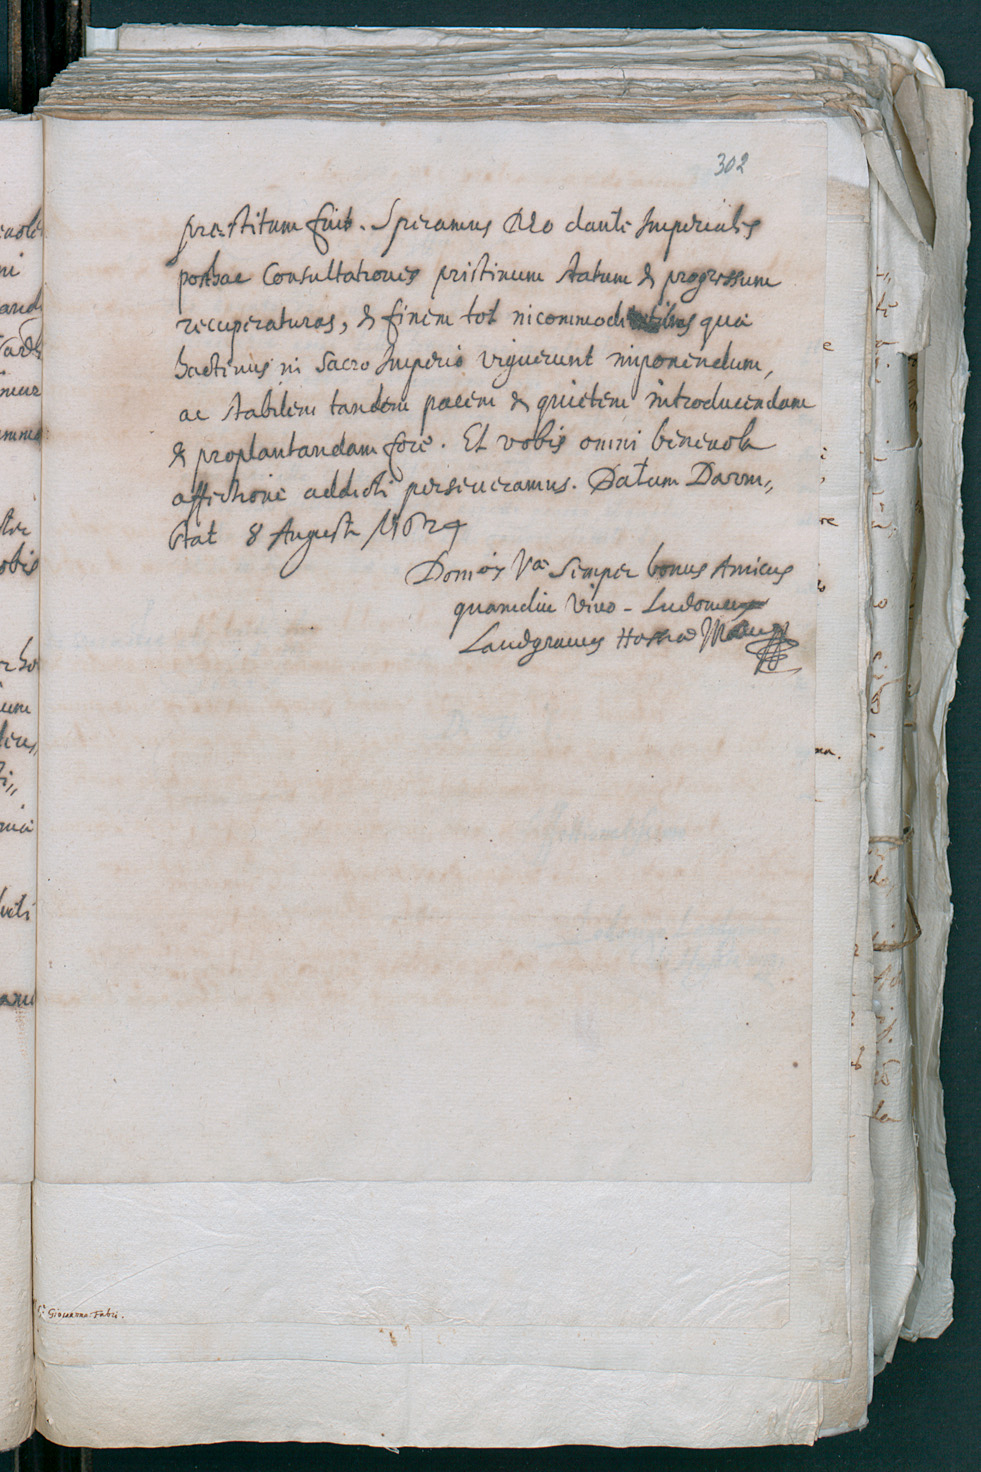 302
præstitum fuit. Speramus Deo dante Imperiales
posthac Consultationes pristinum statum & progressum
recuperaturas, & finem tot incommodis quæ
hactenus in Sacro Imperio viguerunt imponendum,
ac stabilem tandem pacem & quietem introducendam
& proplantandam fore. Et vobis omni benevola
affectione addicti perseveramus. Datum Darm„
stat 8 Augusti 1624
Domõis Væ semper bonus Amicus
quamdiu vivo - Ludovicus
Landgravius Hassiæ
Giovanni Fabri.